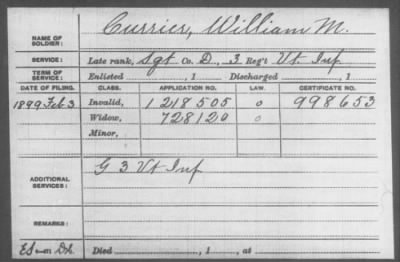 NAME OF SOLDIER: Currier, William M.
SERVICE: Late rank, Sgt Co. D, 3 Reg't Vt Inf
TERM OF SERVICE: Enlisted , 1 . Discharged , 1
DATE OF FILING. CLASS. APPLICATION NO. LAW. CERTIFICATE NO.
1899 Feb 3 Invalid, 1218505 o 998653
Widow, 728120 o
Minor,
ADDITIONAL SERVICES: G 3 Vt Inf
REMARKS:
Died , 1 , at